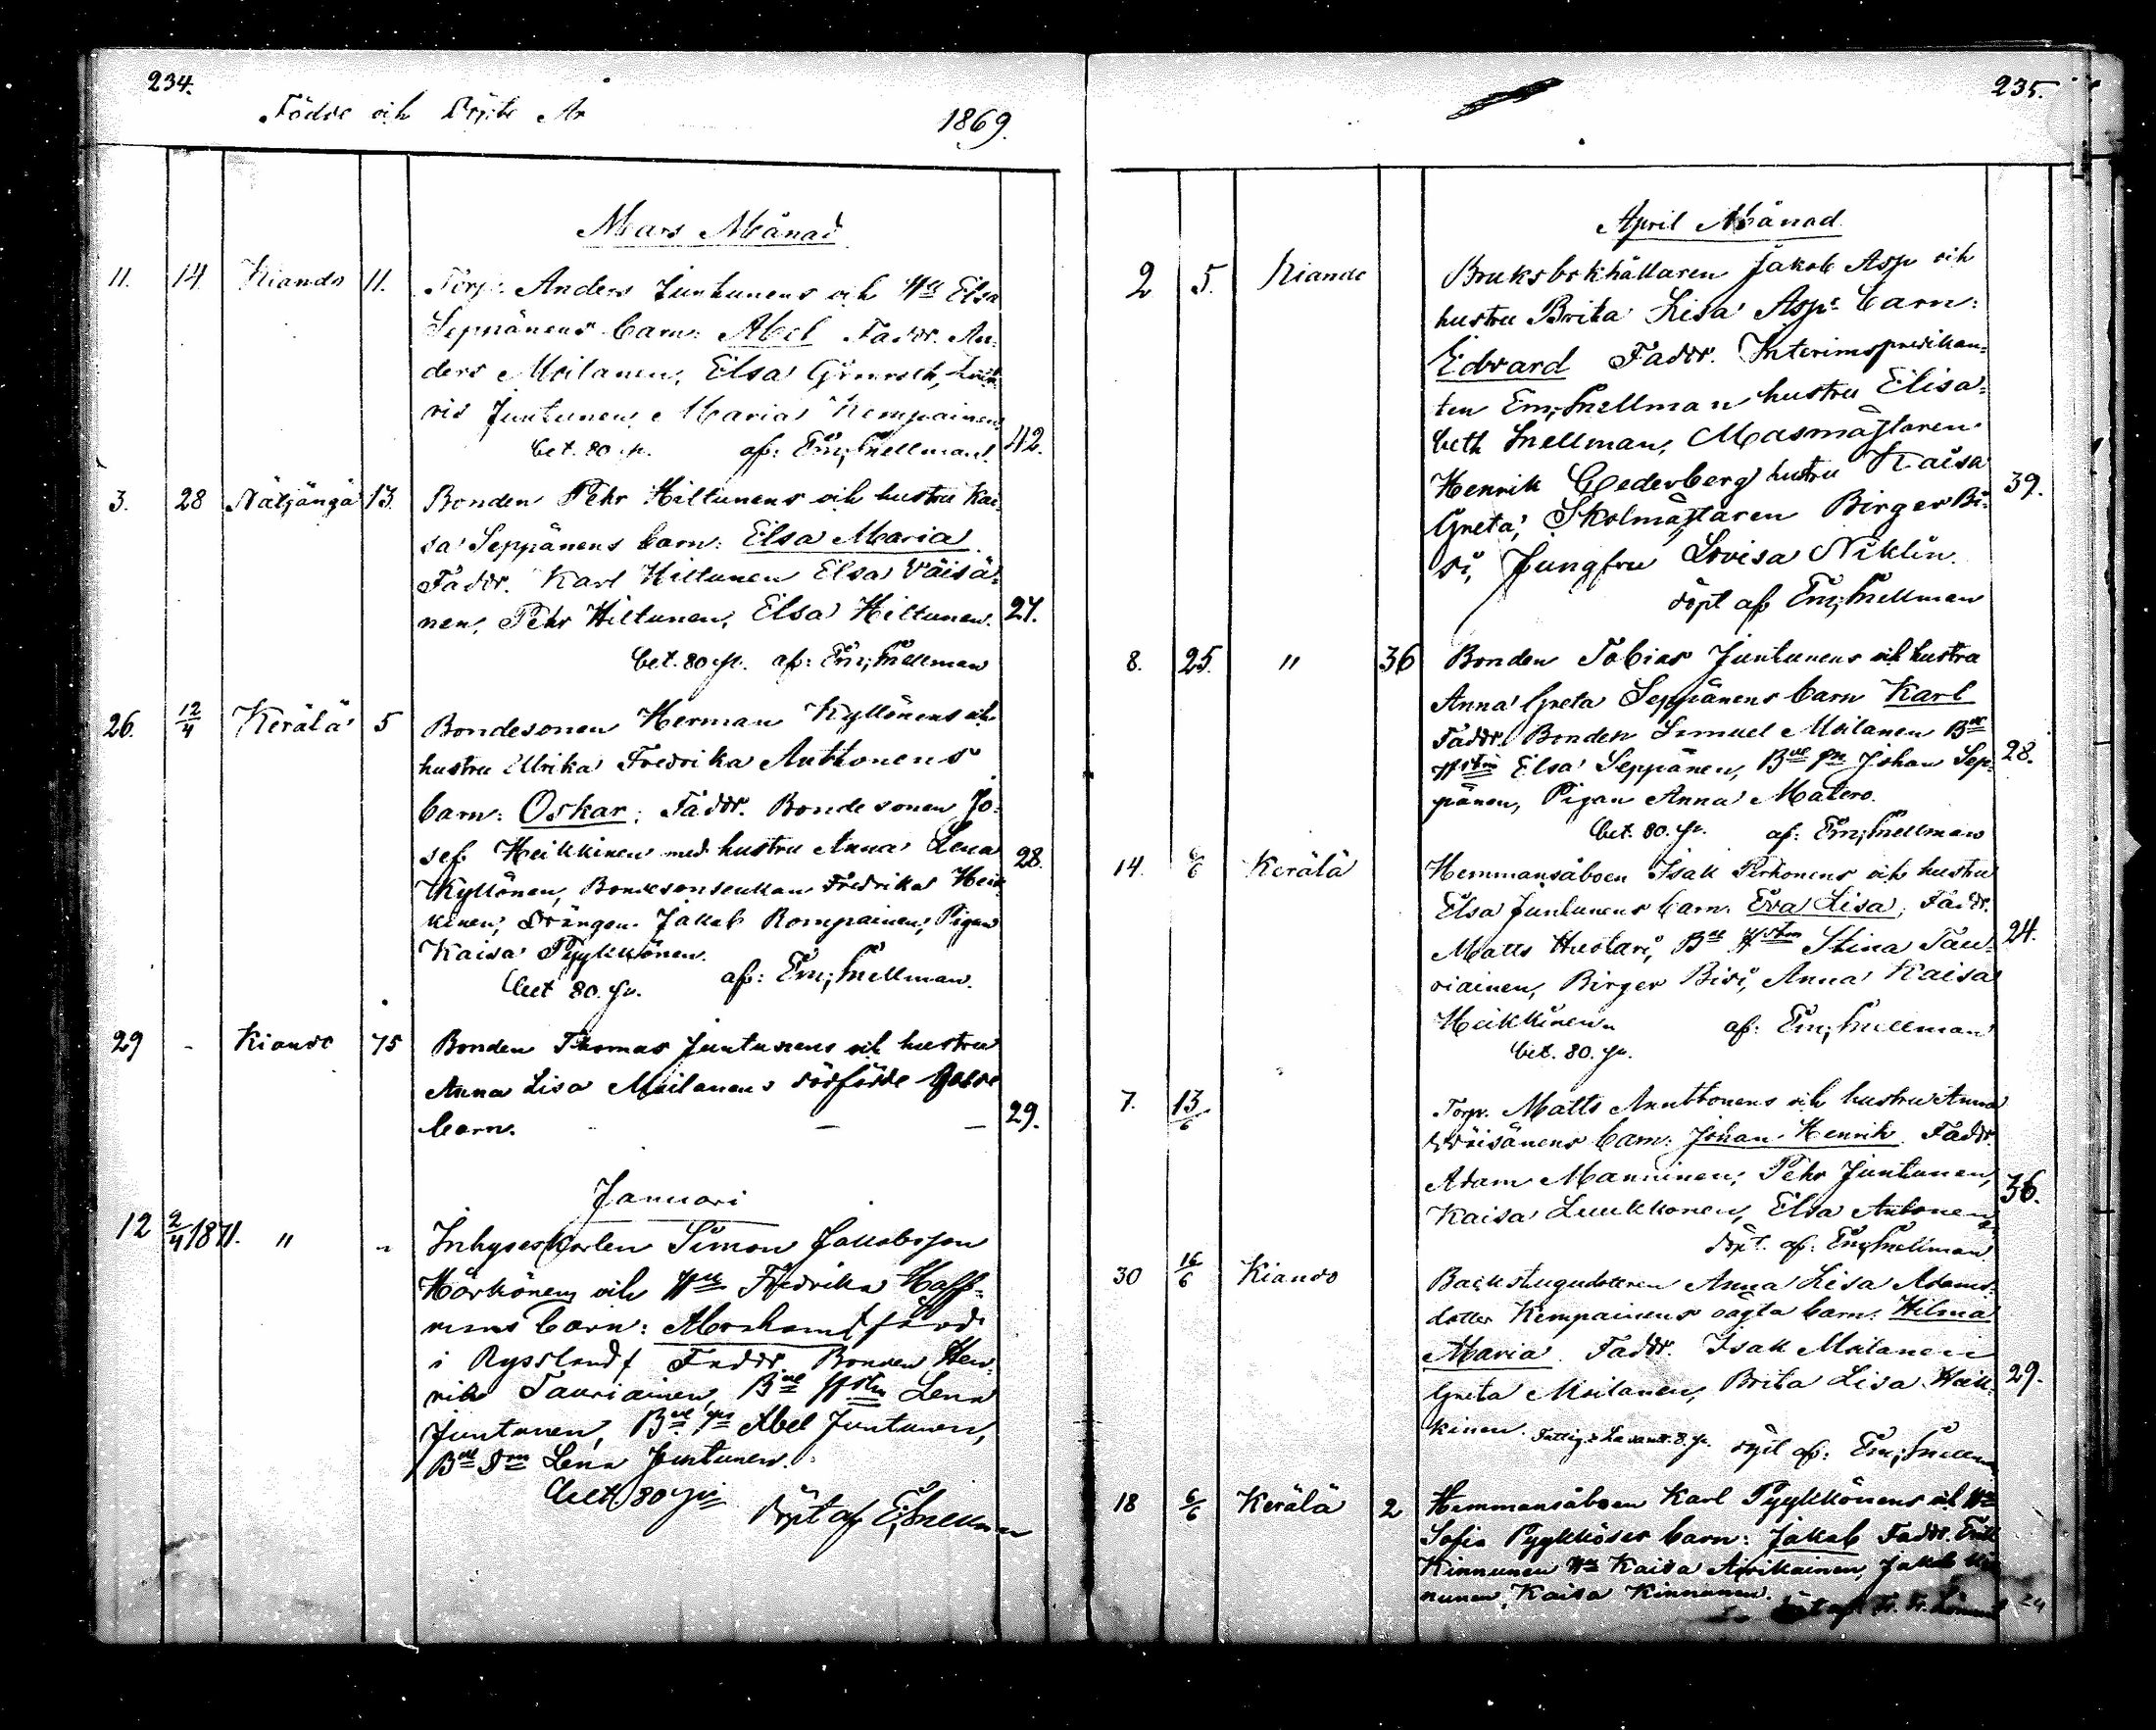 234.
Födde och Döpte År 1869.
Mars Månad
11. 14. Kiando 11. Torp. Anders Juntunens och Hu Elsa
Seppänens barn: Abel Faddr. An-
ders Moilanen, Elsa Grönroth,
Juntunen, Maria Kempainen
42.
bet. 80 p. af: Em; Snellman.
3. 28 Näljängä 13. Bonden Pehr Hiltunens och hustru Kai-
sa Seppänens barn: Elsa Maria.
Faddr. Karl Hiltunen Elsa Väisä-
nen, Pehr Hiltunen, Elsa Hiltunen. 27.
bet. 80 p. af: Em; Snellman
26. 12/4 Kerälä 5 Bondesonen Herman Kyllönens och
hustru Ulrika Fredrika Anttonens
barn: Oskar; Faddr. Bondesonen Jo-
sef Heikkinen med hustru Anna Lena 28.
Kyllönen, Bondesonsenkan Fredrika Heik-
kinen, Drängen Jakob Rompainen, Pigan
Kaisa Pyykkönen.
bet 80. p. af: Em; Snellman.
29 - Kiando 75 Bonden Thomas Juntunens och hustru
Anna Lisa Moilanens dödfödde
barn. - - 29.
Januari
12 2/4 1871. " " Inhyseskarlen Simon Jakobsson
Härkönens och Hu Fredrika Haff-
rens barn: Abraham född
i Ryssland Faddr. Bonden Hen-
rik Tauriainen, Bde Hstn Lena
Juntunen, Bde Sn Abel Juntunen,
Bde Dn Lena Juntunen.
bet. 80 p.
döpt af E; Snellman
235.
April Månad
2 5. Kiando Bruksbokhållaren Jakob Asp och
hustru Brita Lisa Asps barn:
Edvard Faddr. Interimspredikan-
ten Em; Snellman hustru Elisa-
beth Snellman, Masmästaren
Henrik Cederberg hustru Kaisa 39.
Greta, Skolmästaren Birger Bi-
si, Jungfru Lovisa Niklin.
döpt af Em; Snellman
8. 25. " 36 Bonden Tobias Juntunens och hustru
Anna Greta Seppänens barn Karl
Faddr. Bonden Samuel Moilanen Bde
Hstn Elsa Seppänen, Bde Sn Johan Sep- 28.
pänen, Pigan Anna Matero.
bet. 80. p. af: Em; Snellman
14. 6/6 Kerälä Hemmansåboen Isak Pirhonens och hustru
Elsa Juntunens barn. Eva Lisa, Faddr.
Matts Huotari, Bde Hstn Stina Tau- 24.
riainen, Birger Bisi, Anna Kaisa
Heikkinen. af: Em; Snellman
bet. 80. p.
7. 13/6 Torp. Matts Anuttonens och hustru Anna
Wäisänens barn: Johan Henrik Faddr.
Adam Manninen, Pehr Juntunen, 36.
Kaisa Luukkonen, Elsa Antonen
döpt. af: Em; Snellman
30 16/6 Kiando Backstugudottren Anna Lisa Adams-
dotter Kempainens oägta barn: Hilma
Maria. Faddr. Isak Moilanen
Greta Moilanen, Brita Lisa Heik- 29.
kinen. döpt af: Em; Snellman
18 6/6 Kerälä 2 Hemmansåboen Karl Pyykkönens och Hu
Sofia Pyykköses barn: Jakob Faddr. Erik
Kinnunen Hu Kaisa Airikainen, Jakob Kin-
nunen, Kaisa Kinnunen. 24